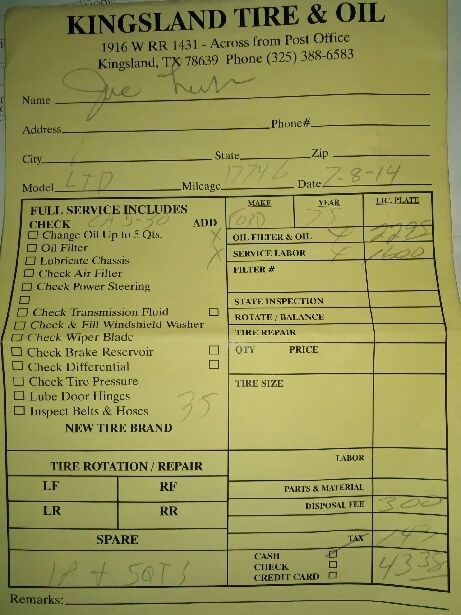 KINGSLAND TIRE & OIL
1916 W RR 1431 - Across from Post Office
Kingsland, TX 78639 Phone (325) 388-6583
Name Joe
Address Phone#
City State Zip
Model LTD Mileage 17746 Date 7-8-14
FULL SERVICE INCLUDES
CHECK 5-30 ADD
Change Oil Up to 5 Qts. X
Oil Filter X
Lubricate Chassis
Check Air Filter
Check Power Steering
Check Transmission Fluid
Check & Fill Windshield Washer
Check Wiper Blade
Check Brake Reservoir
Check Differential
Check Tire Pressure
Lube Door Hinges
Inspect Belts & Hoses 35
NEW TIRE BRAND
TIRE ROTATION / REPAIR
LF RF
LR RR
SPARE
5QTS
MAKE YEAR LIC. PLATE
FORD 75
OIL FILTER & OIL X 2295
SERVICE LABOR X 1600
FILTER #
STATE INSPECTION
ROTATE / BALANCE
TIRE REPAIR
QTY PRICE
TIRE SIZE
LABOR
PARTS & MATERIAL
DISPOSAL FEE 300
TAX
CASH
CHECK 4338
CREDIT CARD
Remarks: